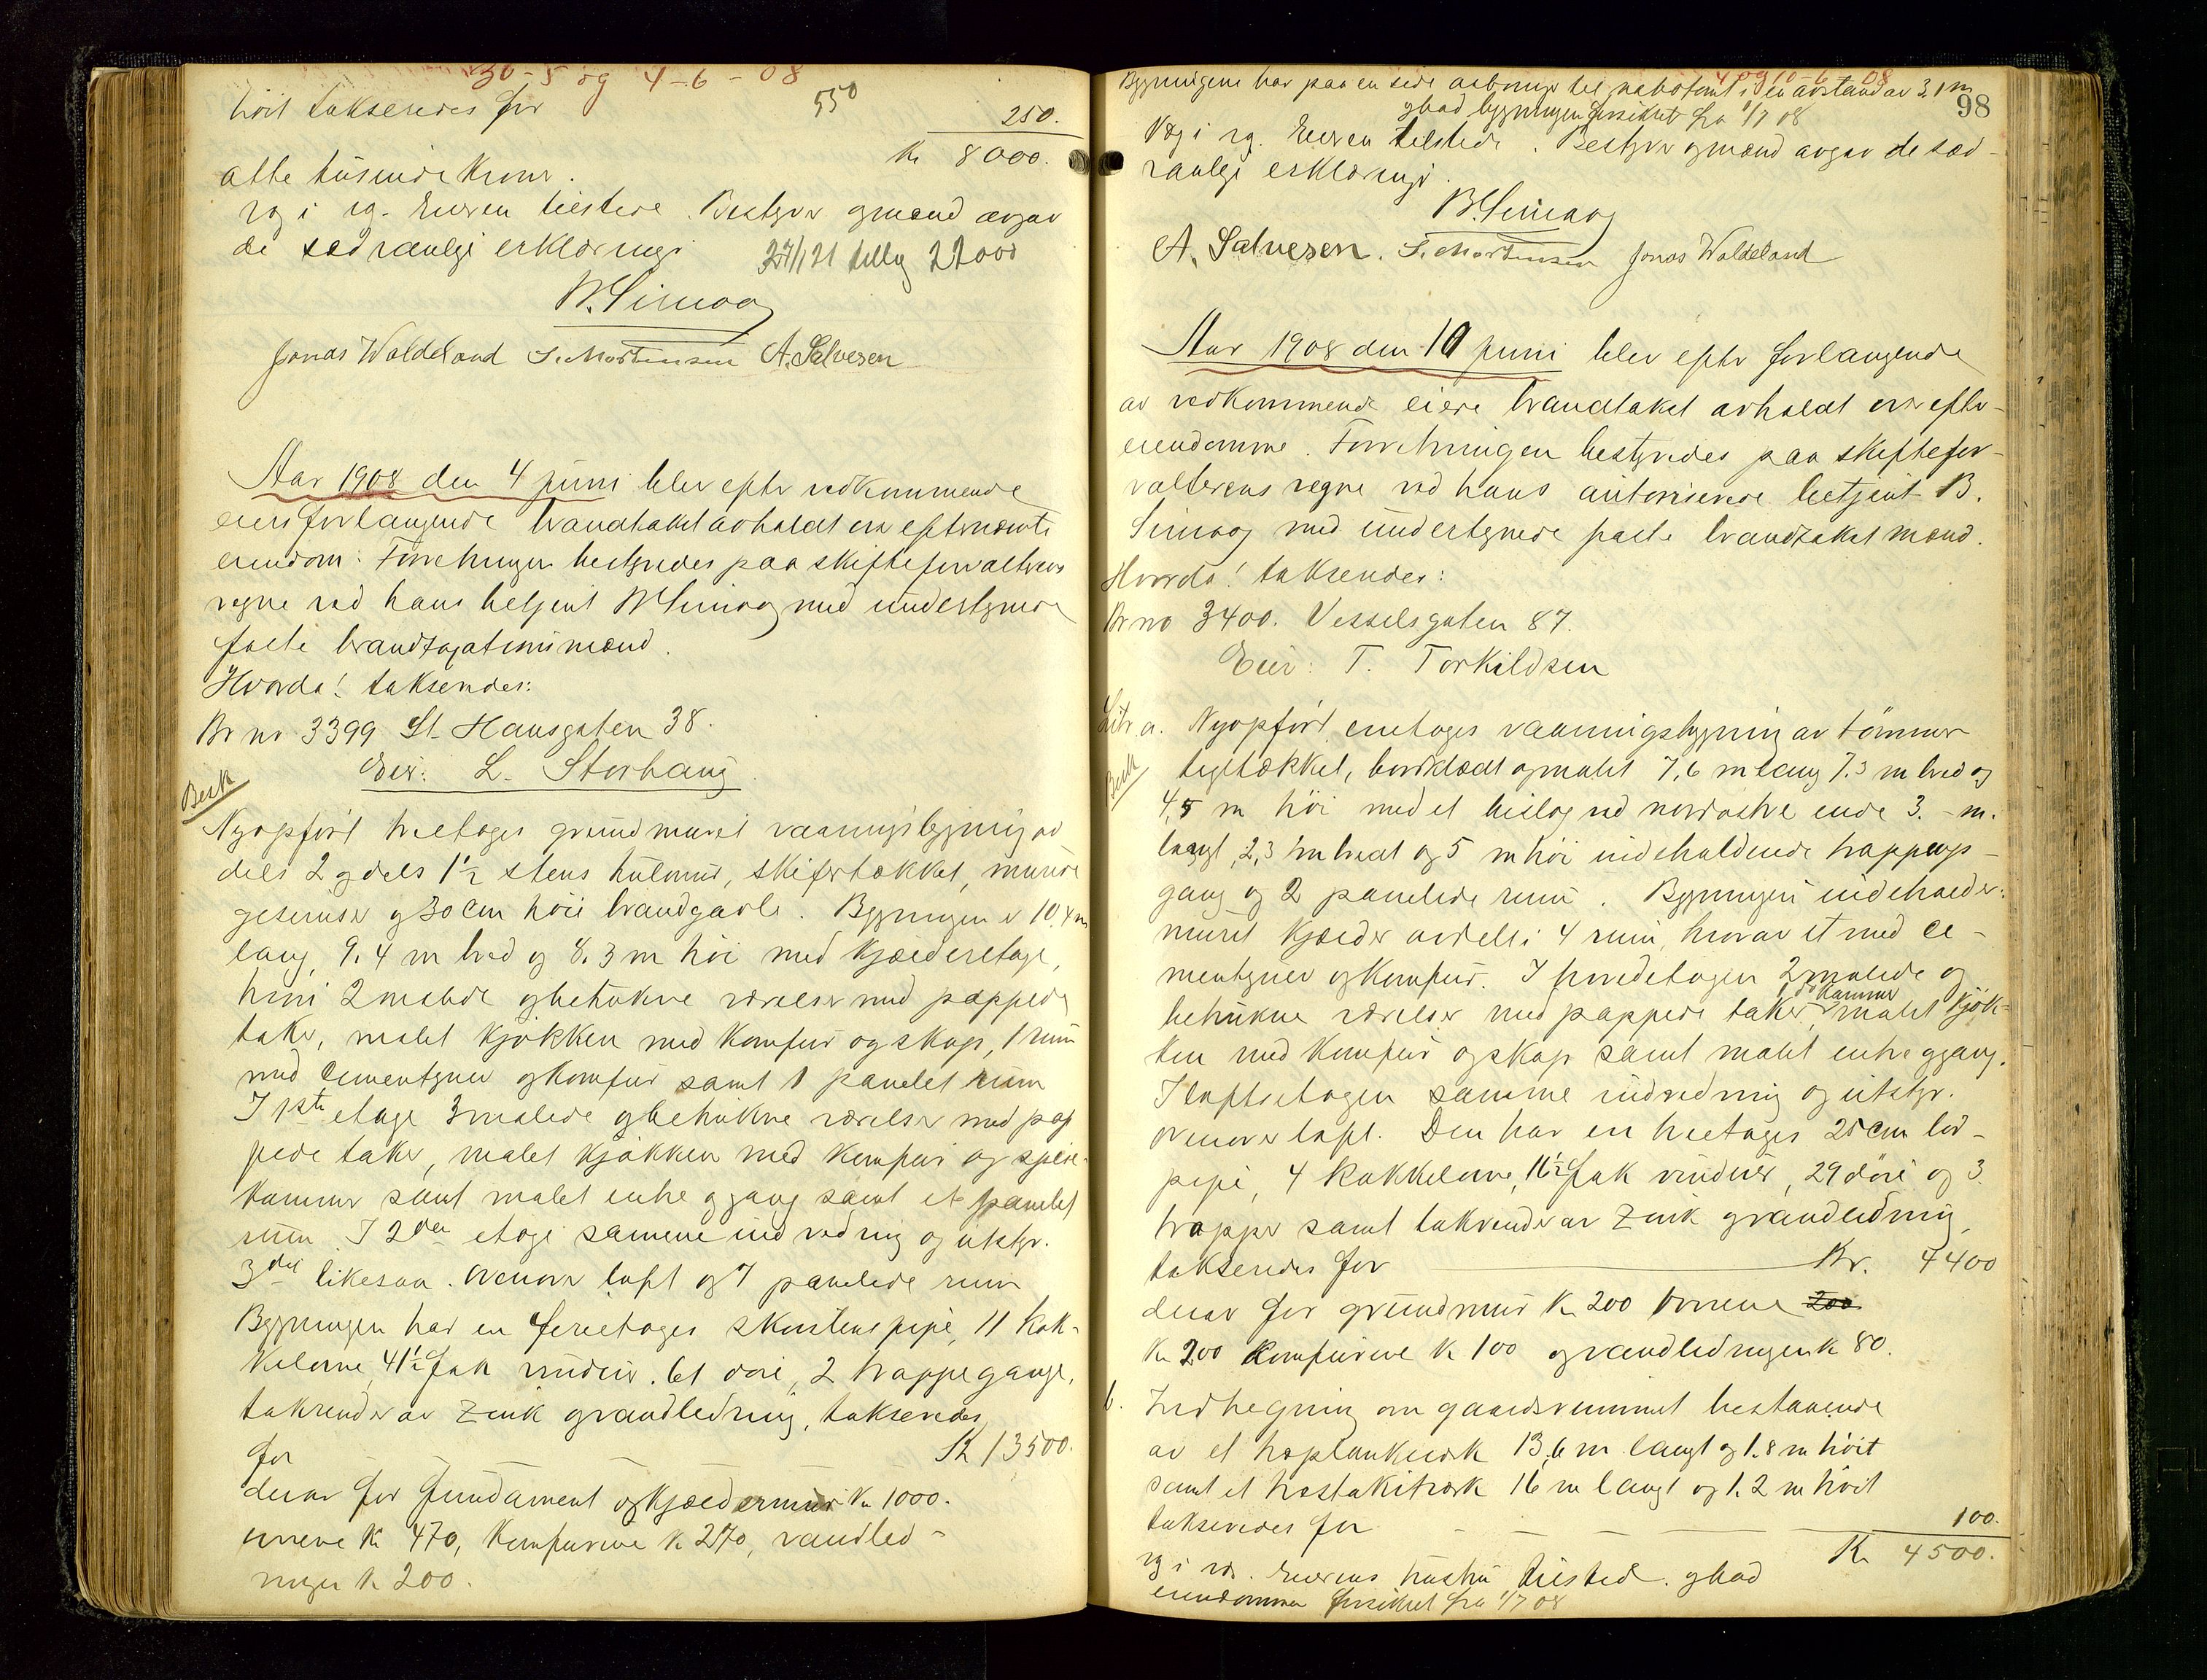 30-5 og 4-6-08
høit takseredes for 550 250.
Kr 8000.
atte tusinde Kroner.
Bestyrer og mænd avgav
de sædvanlige erklæringer 27/1 21 tillæg 22000
B. Simog
Jonas Waldeland S. Mortensen A. Salvesen
Aar 1908 den 4 juni blev efter vedkommende
eiers forlangende brandtakst avholdt over efternævnte
eiendom. Forretningen bestyredes paa skifteforvalterens
vegne ved hans betjent B Simog med undertegnede
faste brandtaxationsmænd.
Hvorda! takseredes:
Br no 3399 St. Hansgaten 38.
Eier: L. Storhaug
Besk
Nyopført treetages grundmuret vaaningsbygning av
dels 2 og dels 1½ stens hulmur, skifertækket, murede
gesimser og 30 cm høie brandgavle. Bygningen er 10.4 m
lang, 9.4 m bred og 8.3 m høi med kjælderetage,
hvori 2 malede og betrukne værelser med pappede
taker, malet kjøkken med komfur og skap, 1 rum
med cementgruer og komfur samt 1 panelet rum
I 1ste etage 3 malede og betrukne værelser med pap
pede taker, malet kjøkken med komfur og spise-
kammer samt malet entre og gang samt et panelet
rum. I 2den etage samme indredning og utstyr.
3die likesaa. Ovenover loft og 7 panelede rum
Bygningen har en fireetages skorstenspipe, 11 kak-
kelovne, 41½ fak vinduer, 61 døre, 2 trappegange,
takrender av zink og vandledning, takseredes
for Kr 13500.
derav for fundament og kjældermur Kr 1000.
ovnene Kr 470, komfurene Kr 270, vandled-
ningen Kr 200.
4 og 10-6-08
Bygningene har paa en side aabninger til nabotomt i en avstand av 3.1 m
og bad bygningen forsikret fra 1/7 08
98
Eieren tilstede. Bestyrer og mænd avgav de sæd-
vanlige erklæringer.
B. Simog
A. Salvesen. S. Mortensen Jonas Waldeland
Aar 1908 den 10 juni blev efter forlangende
av vedkommende eiere brandtakst avholdt over efter-
eiendomme. Forretningen bestyredes paa skiftefor-
valterens vegne ved hans autoriserede betjent B.
Simog med undertegnede faste brandtakstmænd.
Hvorda! takseredes:
Br no 3400. Vesselsgaten 87.
Eier: T. Torkildsen
Litr. a. Nyopført enetages vaaningsbygning av tømmer
Besk
tegltækket, bordklædt og malet 7,6 m lang 7.3 m bred og
4,5 m høi med et bislag ved nordøstre ende 3.- m.
langt, 2,3 m bredt og 5 m høi indeholdende trappeop-
gang og 2 panelede rum. Bygningen indeholder:
muret kjælder avdelt i 4 rum, hvorav et med ce-
mentgruer og komfur. I hovedetagen 2 malede og
betrukne værelser med pappede taker, 1 do kammer malet kjøk-
ken med komfur og skap samt malet entre og gang.
I loftsetagen samme indredning og utstyr.
Ovenover loft. Den har en treetages 25 cm lod-
pipe, 4 kakkelovne, 16½ fak vinduer, 29 døre og 3
trapper samt takrender av zink og vandledning,
takseredes for Kr. 4400
derav for grundmur Kr 200 ovnene 200
Kr 200 komfurene Kr 100 og vandledningen Kr 80.
b. Indhegning om gaardsrummet bestaaende
av et træplankverk 13,6 m langt og 1.8 m høit
samt et træstakitværk 16 m langt og 1.2 m høit
takseredes for 100.
Kr 4500.
Eierens hustru tilsted. og bad
eiendommen forsikret fra 1/7 08